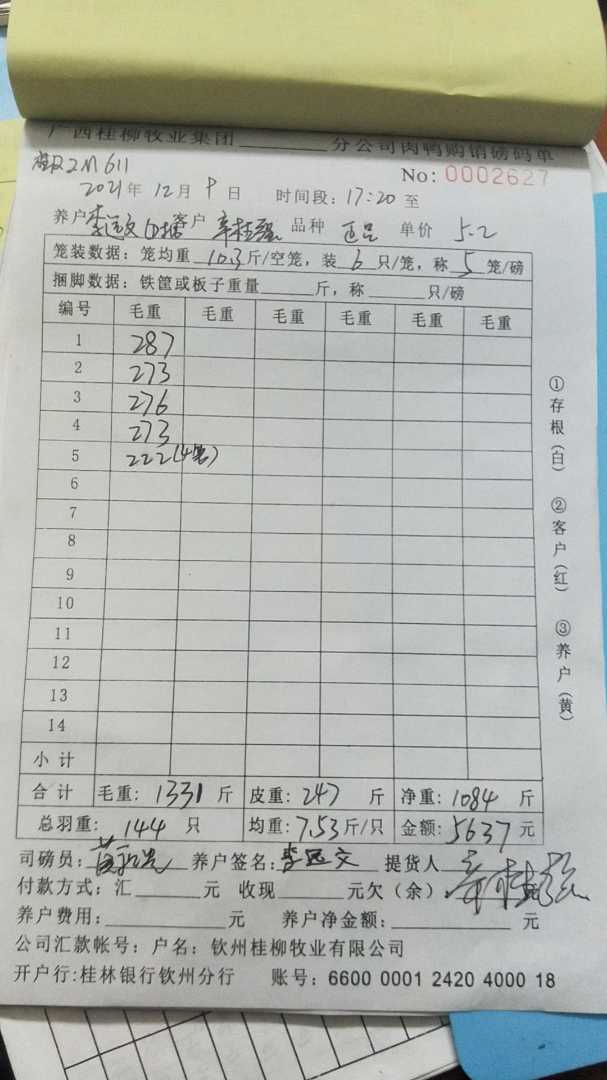 广西桂柳牧业集团______分公司肉鸭购销磅码单
2M611 No: 0002627
2021年 12月 9日 时间段: 17:20 至
养户 李远文 客户 辛桂强 品种 单价 5.2
笼装数据: 笼均重 10.3 斤/空笼, 装 6 只/笼, 称 5 笼/磅
捆脚数据: 铁筐或板子重量______斤, 称______只/磅
编号 毛重 毛重 毛重 毛重 毛重 毛重
1 287
2 273
3 276
4 273
5 222(4笼)
6
7
8
9
10
11
12
13
14
小计
合计 毛重: 1331 斤 皮重: 247 斤 净重: 1084 斤
总羽重: 144 只 均重: 7.53斤/只 金额: 5637 元
司磅员: 养户签名: 李远文 提货人 辛桂强
付款方式: 汇______元 收现______元欠(余)
养户费用:______元 养户净金额:______元
公司汇款帐号: 户名: 钦州桂柳牧业有限公司
开户行:桂林银行钦州分行 账号: 6600 0001 2420 4000 18
①存根(白) ②客户(红) ③养户(黄)